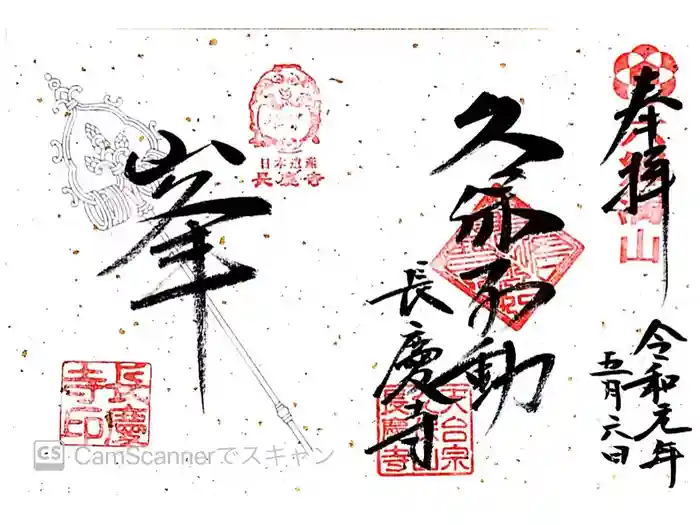 奉拝
山
令和元年
五月六日
久保不動
長慶寺
天台宗
長慶寺
日本遺産
長慶寺
峯
長慶
寺印
CS CamScannerでスキャン